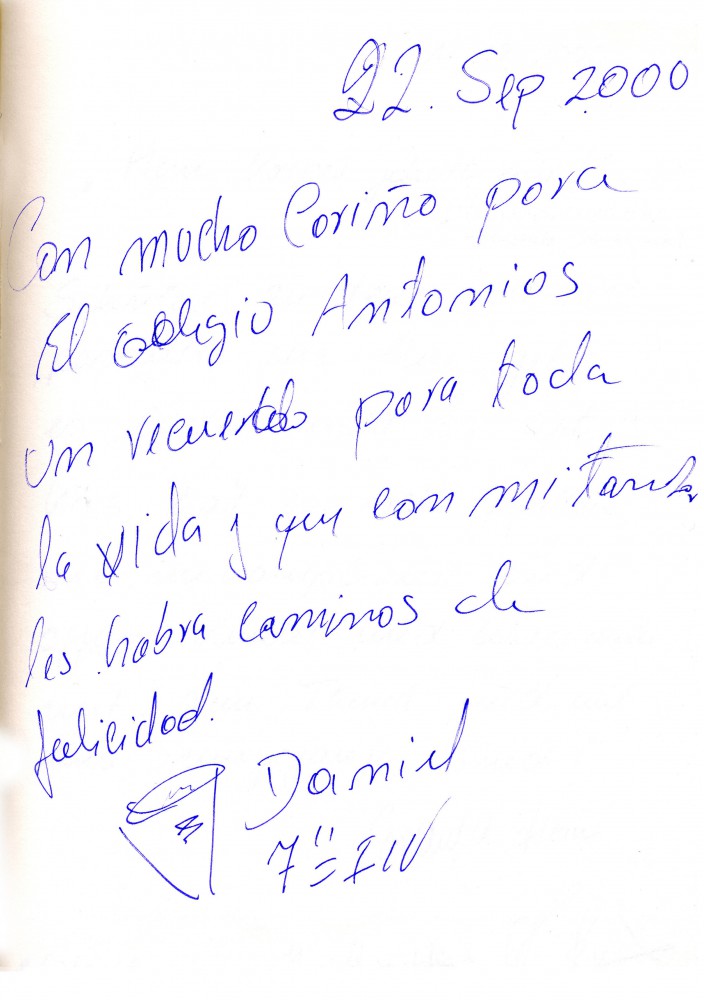 22. Sep 2000
Con mucho Cariño para
El colegio Antonios
un recuerdo para toda
la vida y que con mi
les habra caminos de
felicidad.
Daniel